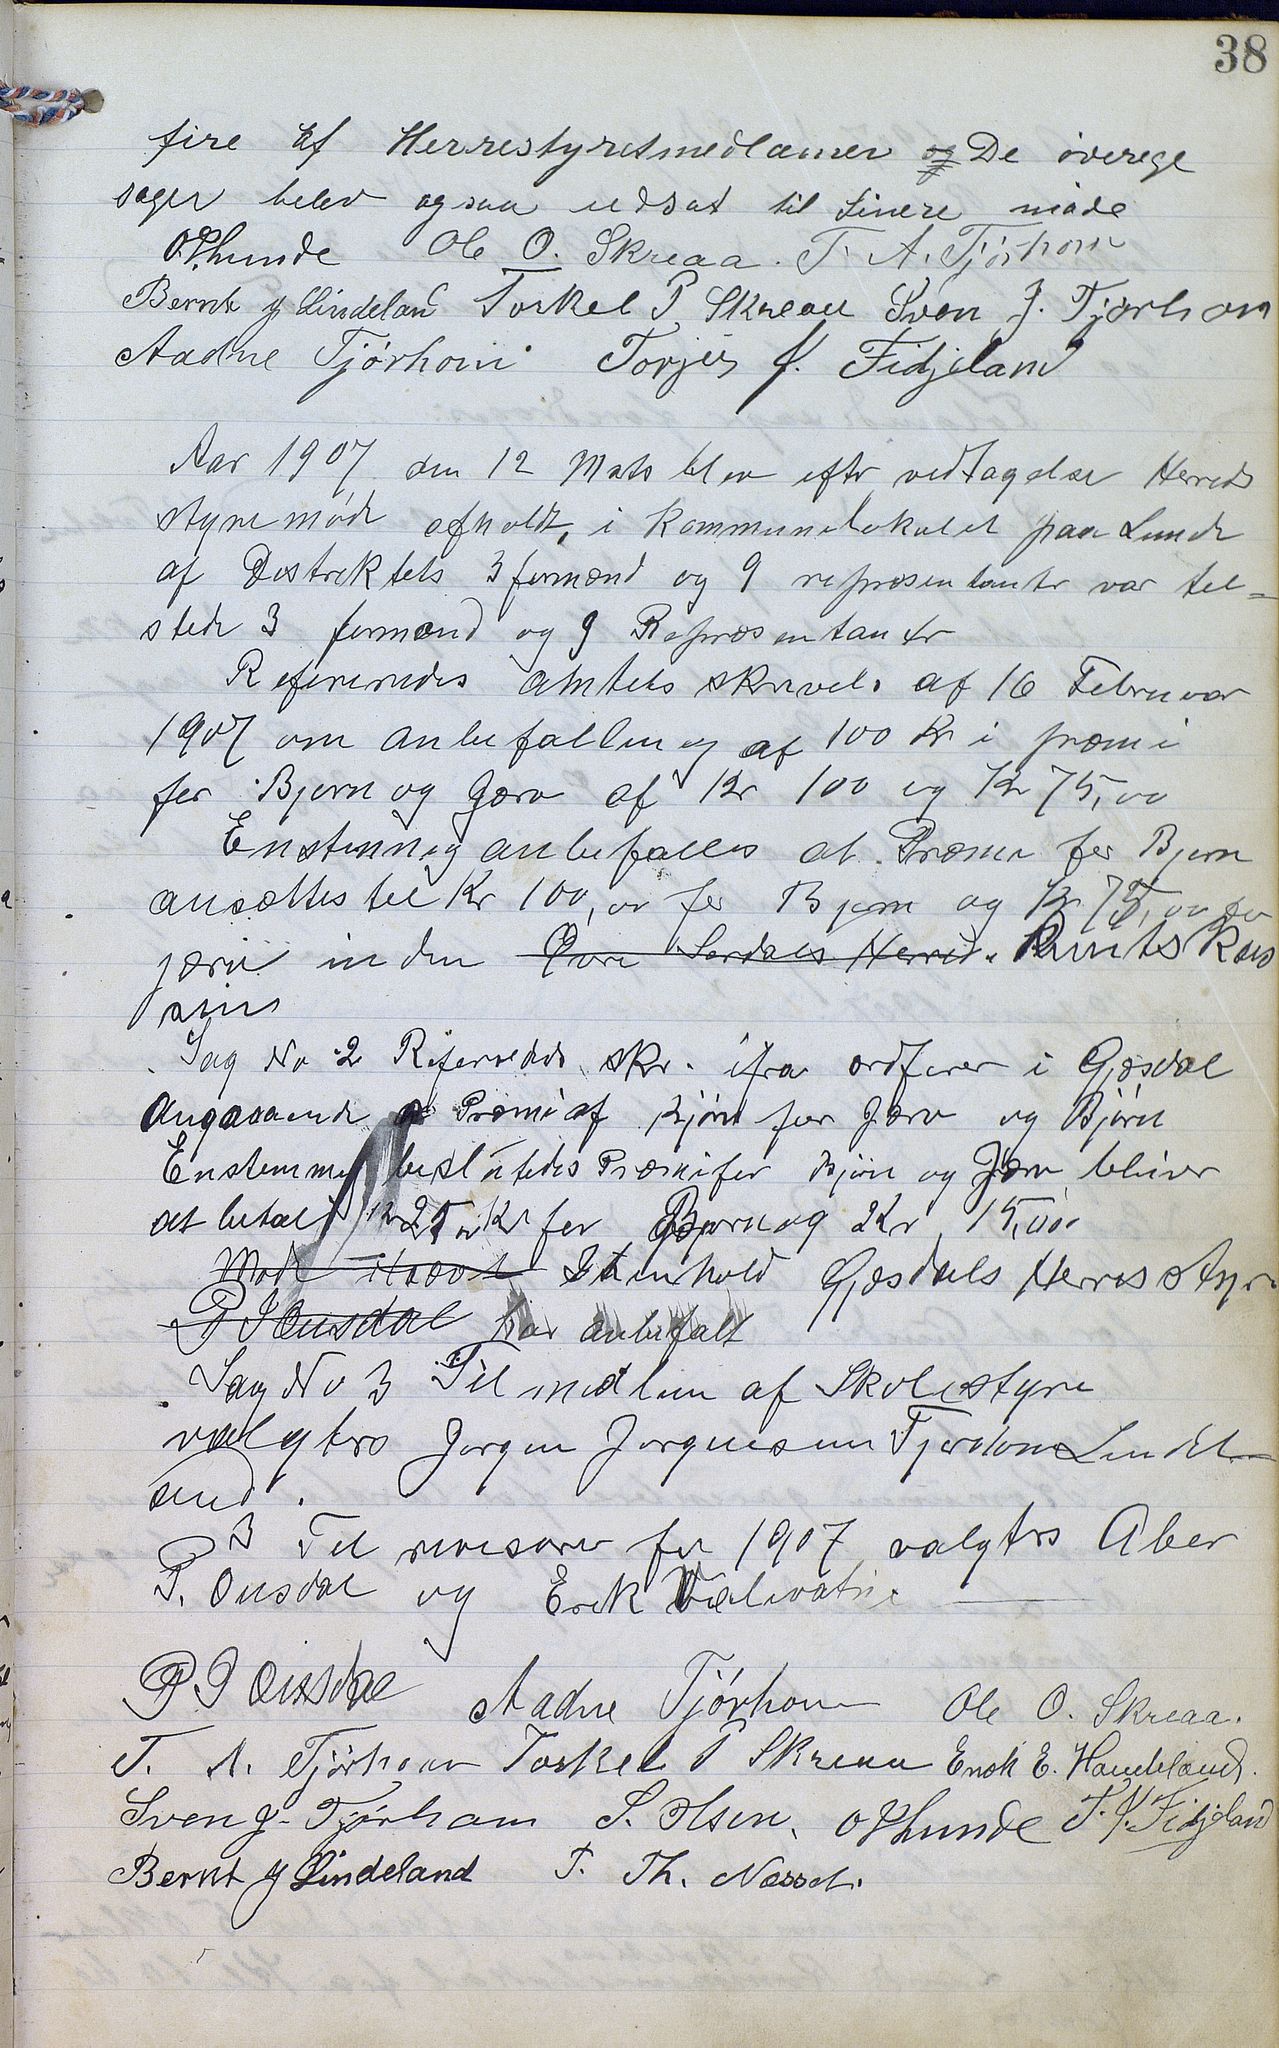 38
fire af Herrestyretmedlamer og De øverege
sager belev ogsaa udsat til sinere møde
O. P. Lunde Ole O. Skreaa. T. A. Tjørhom
Bernt J Lindeland Torkel P Skreaa Sven J. Tjørhom
Aadne Tjørhom Torjus K. Fidjeland
Aar 1907 den 12 Mats blev eftr vedtagelse Herreds
styremøde afholdt, i kommunelokalet paa Lunde
af Destrektets 3 formænd og 9 repræsentantr var tel=
stede 3 formænd og 9 Repræsentantr
Refereredes amtets skrivels af 16 Februar
1907 om anbefalling af 100 Kr i præmi
fer Bjørn og Jærv af Kr 100 og Kr 75,00
Enstemig anbefalles at Præmi fer Bjørn
ansættes tel Kr 100,00 fer Bjørn og Kr 75,00 for
jærv inden Øvre Serdals Herred. Amts Kas
sins
Sag No 2 Refereredes skr. ifra ordfører i Gjesdal
angaaende Præmi af fer Jærv og Bjørn
Enstemmig beslutedes Præmi fer Bjørn og Jærv bliver
at betale Kr 25 Kr fer Bjørn og 2 Kr 15,00
Møde Hævet I henhold Gjesdals Herres styre
P J Ousdal har anbefalt
Sag No 3 Til medlem af Skolestyre
valgtes Jørgen Jørgensen Tjørdom Lindel
and.
3 Tel revisorer for 1907 valgtes Aber
P. Ousdal og Erik Vælevatn.
P J Ousdal Aadne Tjørhom Ole O. Skreaa.
T. A. Tjørhom Torkel P Skreaa Enok E. Haudeland.
Sven J. Tjørhom S. Olsen. O P Lunde T. K. Fidjeland
Bernt J Lindeland T. Th. Nesset.